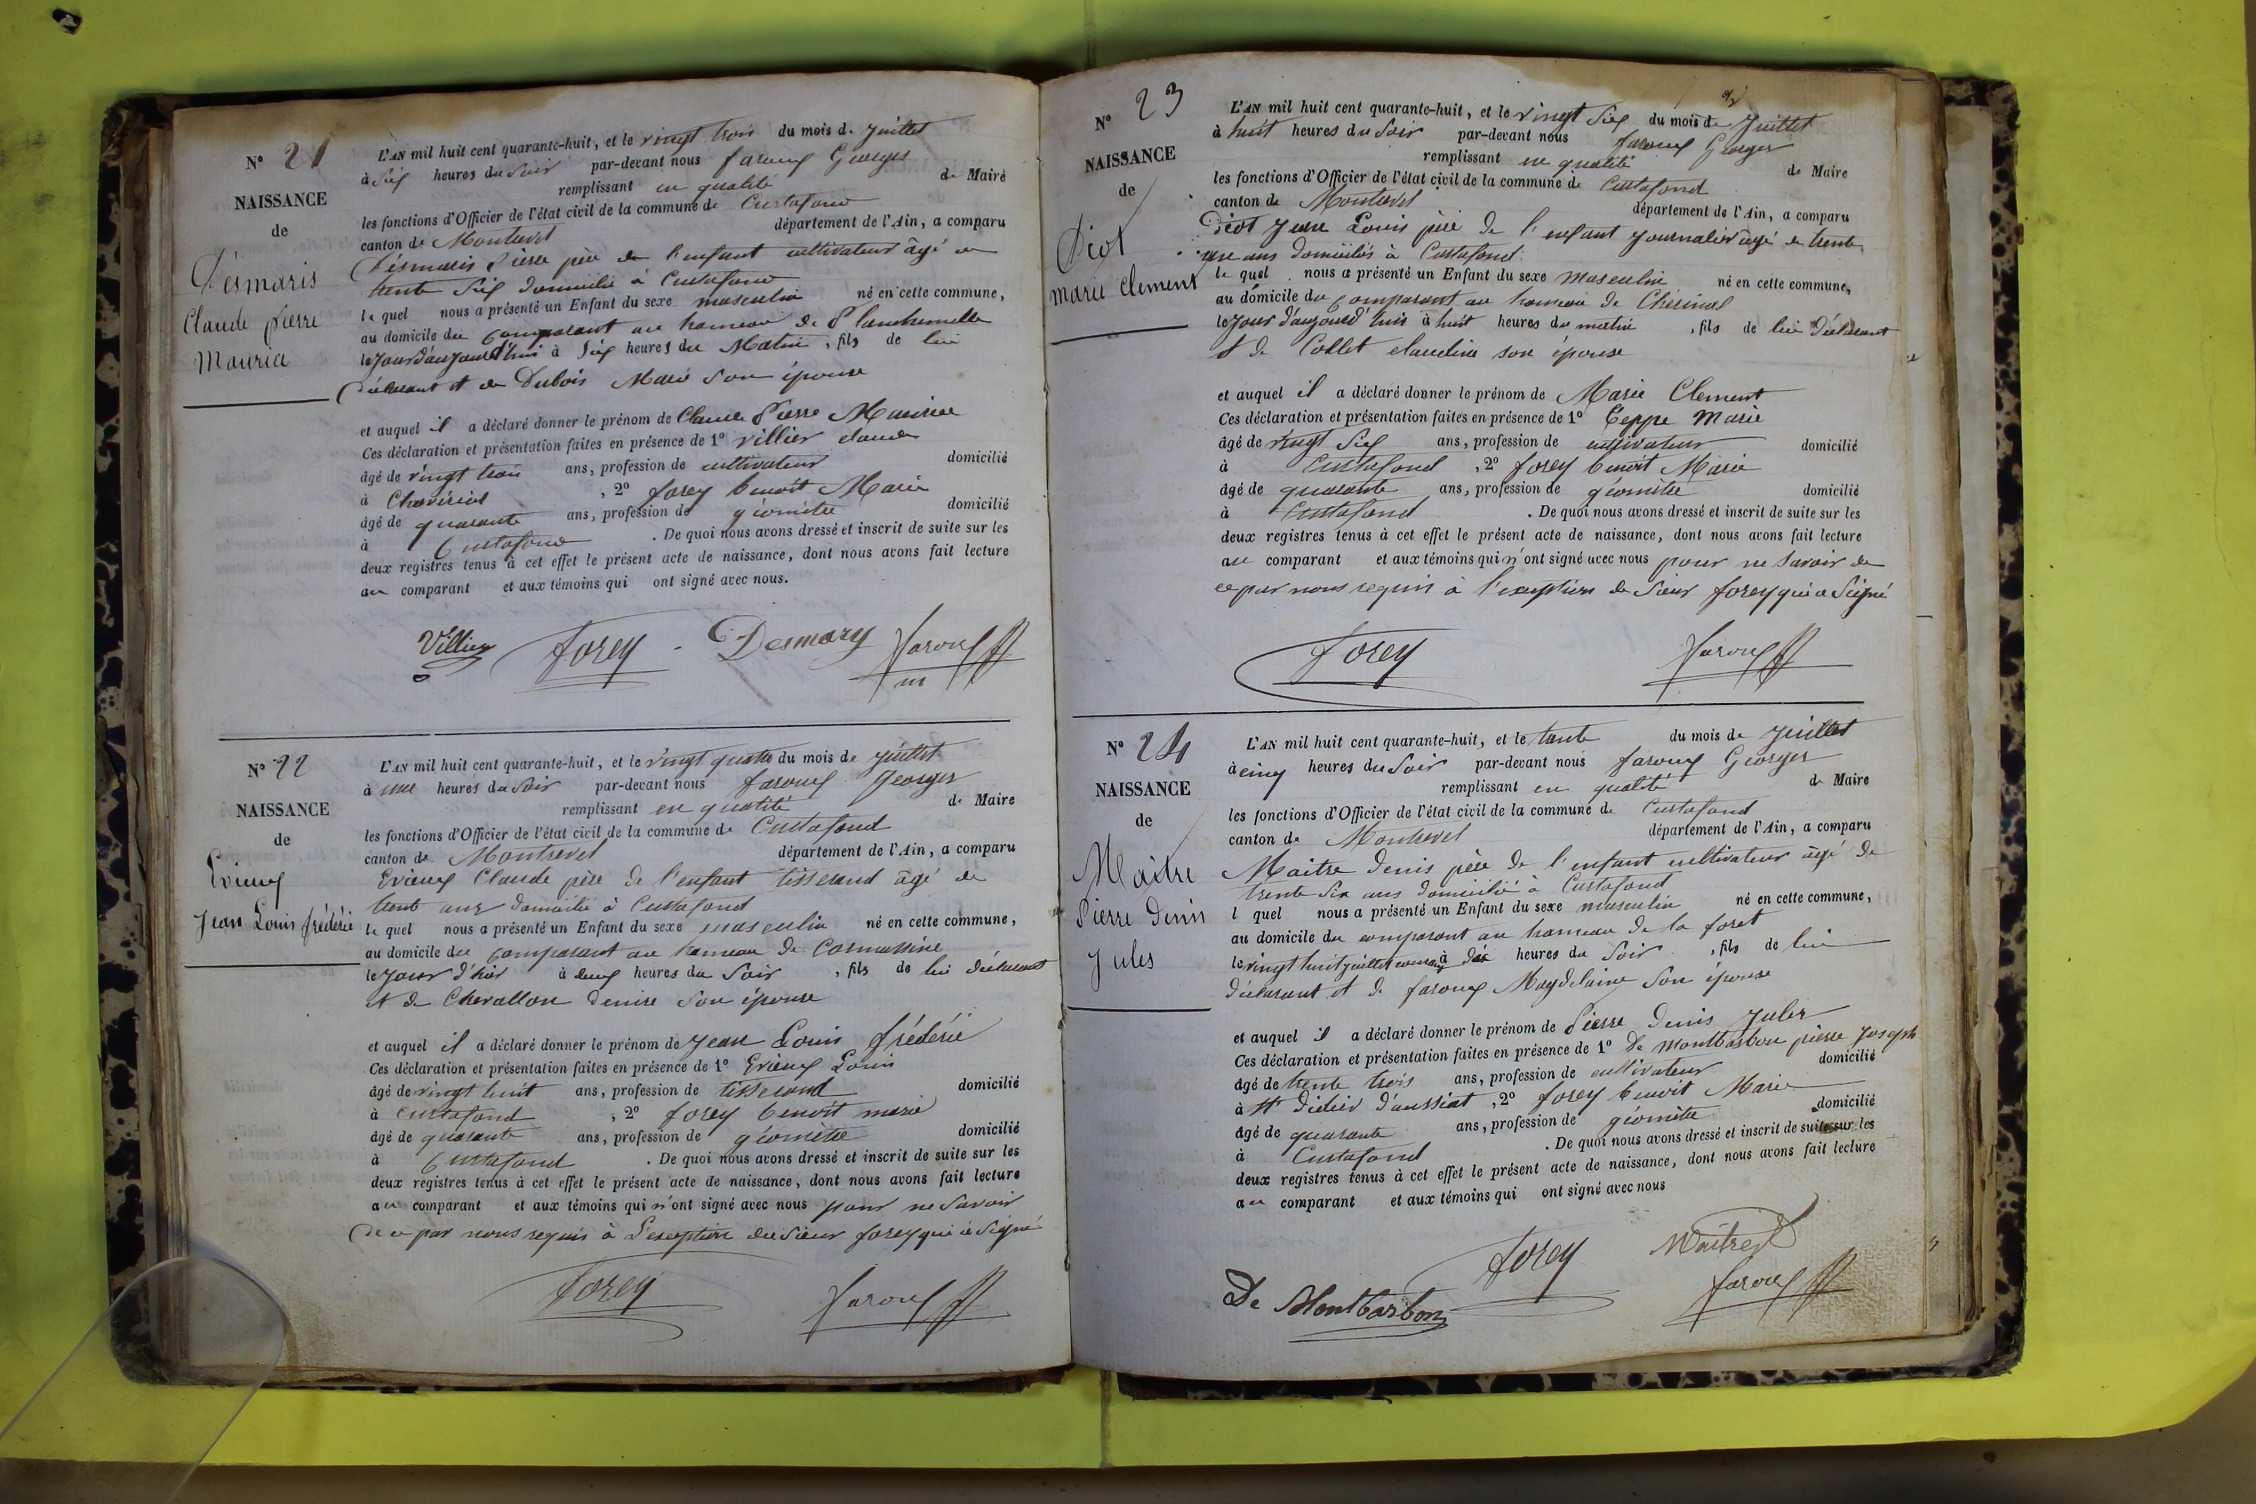 N° 21
NAISSANCE
de
Désmaris
Claude Pierre
Maurice
L'AN mil huit cent quarante-huit, et le vingt trois du mois de juillet
à Six heures du Soir par-devant nous faroux Georges
remplissant en qualité de Maire
les fonctions d'Officier de l'état civil de la commune de Curtafond
canton de Montrevel département de l'Ain, a comparu
Désmaris Pierre père de l'enfant cultivateur âgé de
trente Six domicilié à Curtafond
le quel nous a présenté un Enfant du sexe masculin né en cette commune,
au domicile du comparant au hameau de Planchemelle
le Jour d'aujourd'hui à Six heures du Matin, fils de lui
Déclarant et de Dubois Marie Son épouse
et auquel il a déclaré donner le prénom de Claude Pierre Maurice
Ces déclaration et présentation faites en présence de 1° Villier claude
âgé de vingt trois ans, profession de cultivateur domicilié
à Chavériat, 2° forey benoît Marie
âgé de quarante ans, profession de géomètre domicilié
à Curtafond. De quoi nous avons dressé et inscrit de suite sur les
deux registres tenus à cet effet le présent acte de naissance, dont nous avons fait lecture
au comparant et aux témoins qui ont signé avec nous.
Villier forey Desmary faroux
m
N° 22
NAISSANCE
de
Evieux
Jean Louis frédéric
L'AN mil huit cent quarante-huit, et le vingt quatre du mois de juillet
à une heures du Soir par-devant nous faroux Georges
remplissant en qualité de Maire
les fonctions d'Officier de l'état civil de la commune de Curtafond
canton de Montrevel département de l'Ain, a comparu
Evieux Claude père de l'enfant tisserand âgé de
trente ans domicilié à Curtafond
le quel nous a présenté un Enfant du sexe masculin né en cette commune,
au domicile du comparant au hameau de Cormassine
le Jour d'hier à deux heures du Soir, fils de lui déclarant
et de Chevallon denise Son épouse
et auquel il a déclaré donner le prénom de Jean Louis frédéric
Ces déclaration et présentation faites en présence de 1° Evieux Louis
âgé de vingt huit ans, profession de tisserand domicilié
à Curtafond, 2° forey benoît marie
âgé de quarante ans, profession de géomètre domicilié
à Curtafond. De quoi nous avons dressé et inscrit de suite sur les
deux registres tenus à cet effet le présent acte de naissance, dont nous avons fait lecture
au comparant et aux témoins qui n'ont signé avec nous pour ne savoir
de ce par nous requis à l'exception du Sieur forey qui a Signé
forey faroux
N° 23
NAISSANCE
de
Diot
Marie Clement
L'AN mil huit cent quarante-huit, et le vingt Six du mois de Juillet
à huit heures du Soir par-devant nous faroux Georges
remplissant en qualité de Maire
les fonctions d'Officier de l'état civil de la commune de Curtafond
canton de Montrevel département de l'Ain, a comparu
Diot Jean Louis père de l'enfant Journalier âgé de trente
une ans domicilié à Curtafond
le quel nous a présenté un Enfant du sexe masculin né en cette commune,
au domicile du comparant au hameau de Chérinal
le Jour d'aujourd'huis à huit heures du matin, fils de lui Déclarant
et de Collet claudine son épouse
et auquel il a déclaré donner le prénom de Marie Clement
Ces déclaration et présentation faites en présence de 1° Teppe Marie
âgé de vingt Six ans, profession de cultivateur domicilié
à Curtafond, 2° forey benoît Marie
âgé de quarante ans, profession de géomètre domicilié
à Curtafond. De quoi nous avons dressé et inscrit de suite sur les
deux registres tenus à cet effet le présent acte de naissance, dont nous avons fait lecture
au comparant et aux témoins qui n'ont signé avec nous pour ne Savoir de
ce par nous requis à l'exception du Sieur forey qui a Signé
forey faroux
N° 24
NAISSANCE
de
Maitre
Pierre Denis
Jules
L'AN mil huit cent quarante-huit, et le trente du mois de Juillet
à cinq heures du Soir par-devant nous faroux Georges
remplissant en qualité de Maire
les fonctions d'Officier de l'état civil de la commune de Curtafond
canton de Montrevel département de l'Ain, a comparu
Maitre Denis père de l'enfant cultivateur âgé de
trente Six ans domicilié à Curtafond
l quel nous a présenté un Enfant du sexe masculin né en cette commune,
au domicile du comparant au hameau de la foret
le vingt huit juillet courant à dix heures du Soir, fils de lui
déclarant et de faroux Magdelaine Son épouse
et auquel il a déclaré donner le prénom de Pierre Denis Jules
Ces déclaration et présentation faites en présence de 1° De Montbarbon pierre Joseph
âgé de trente trois ans, profession de cultivateur domicilié
à St didier d'aussiat, 2° forey benoit Marie
âgé de quarante ans, profession de géomètre domicilié
à Curtafond. De quoi nous avons dressé et inscrit de suite sur les
deux registres tenus à cet effet le présent acte de naissance, dont nous avons fait lecture
au comparant et aux témoins qui ont signé avec nous
forey Maitre
De Montbarbon faroux